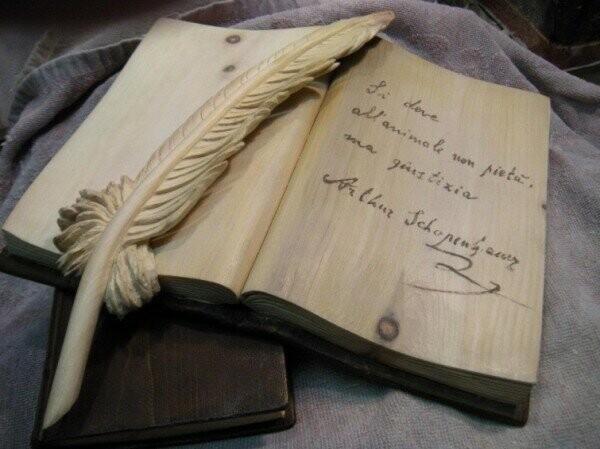 Si deve
all'animale non pietà,
ma giustizia
Arthur Schopenhauer